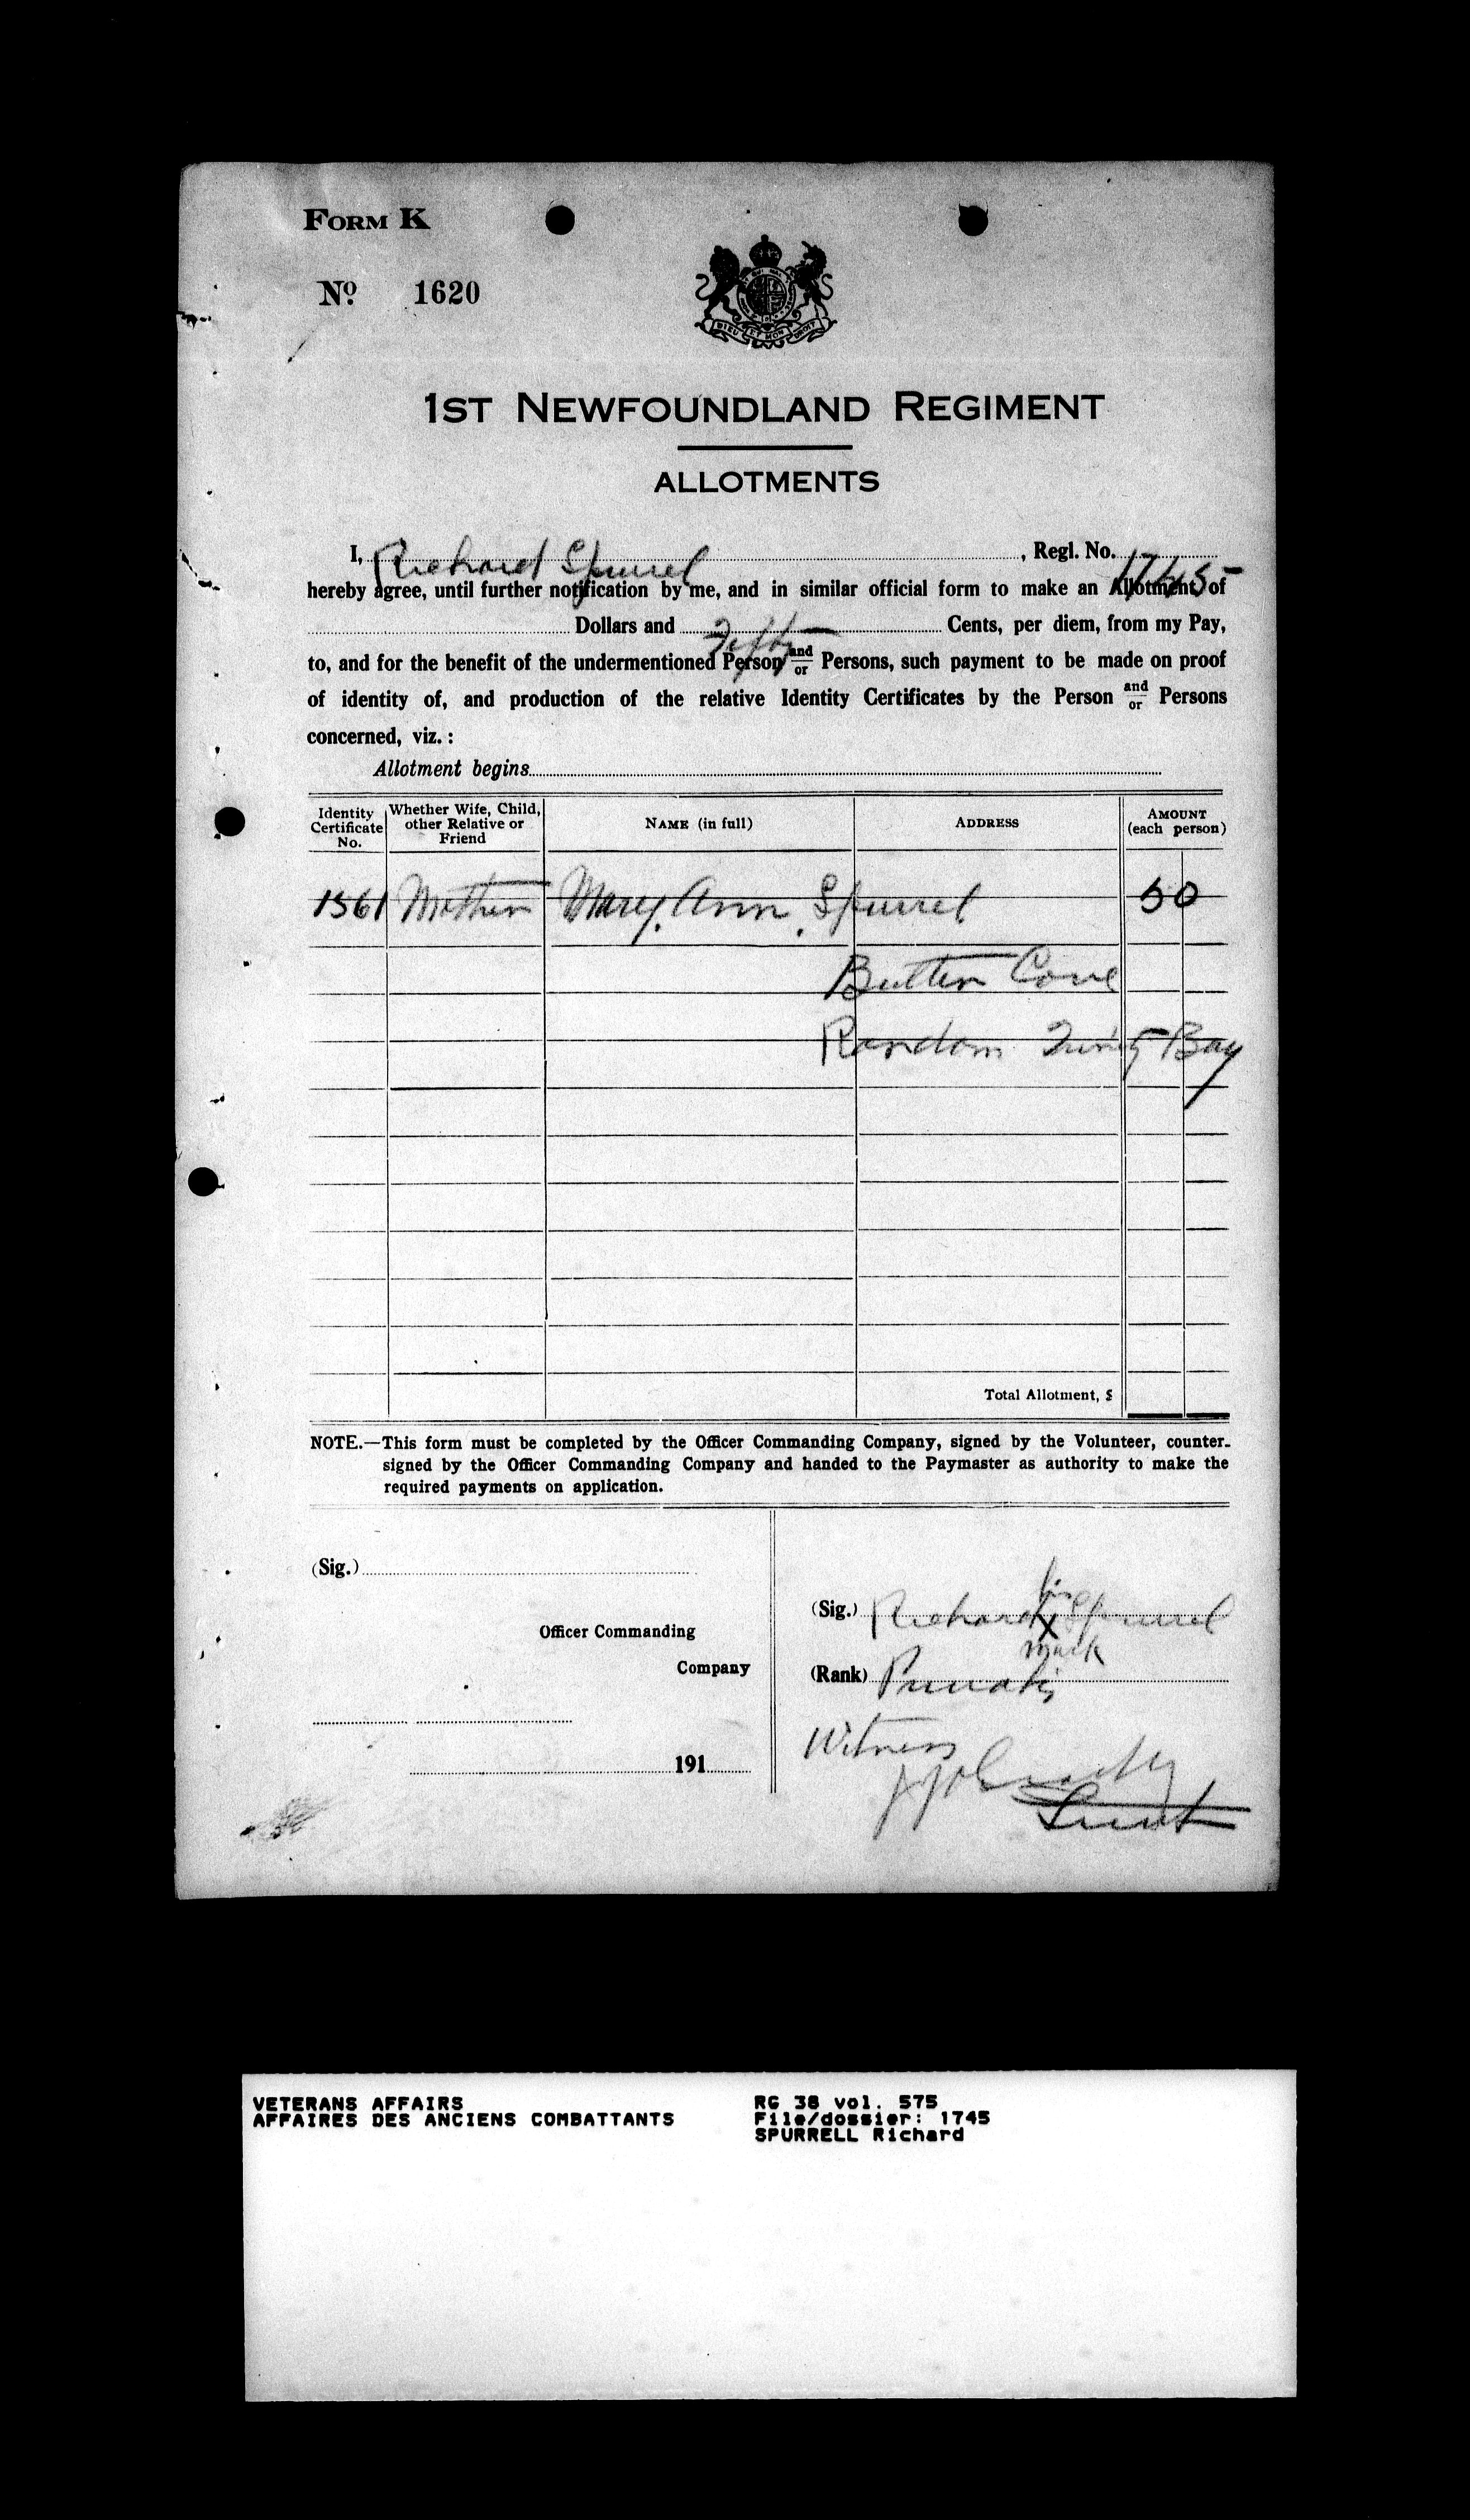 FORM K
No. 1620
DIEU ET MON DROIT
1ST NEWFOUNDLAND REGIMENT
ALLOTMENTS
I, Richard Spurrel, Regl. No. 1745
hereby agree, until further notification by me, and in similar official form to make an Allotment of
Dollars and Fifty Cents, per diem, from my Pay,
to, and for the benefit of the undermentioned Person and/or Persons, such payment to be made on proof
of identity of, and production of the relative Identity Certificates by the Person and/or Persons
concerned, viz. :
Allotment begins
Identity Certificate No. Whether Wife, Child, other Relative or Friend NAME (in full) ADDRESS AMOUNT (each person)
1561 Mother Mary Ann Spurrel 50
Butter Cove
Random Trinity Bay
Total Allotment, $
NOTE.—This form must be completed by the Officer Commanding Company, signed by the Volunteer, counter-
signed by the Officer Commanding Company and handed to the Paymaster as authority to make the
required payments on application.
(Sig.)
Officer Commanding
Company
191
his
(Sig.) Richard X Spurrel
mark
(Rank) Private
Witness
Lieut
VETERANS AFFAIRS
AFFAIRES DES ANCIENS COMBATTANTS
RG 38 vol. 575
File/dossier: 1745
SPURRELL Richard